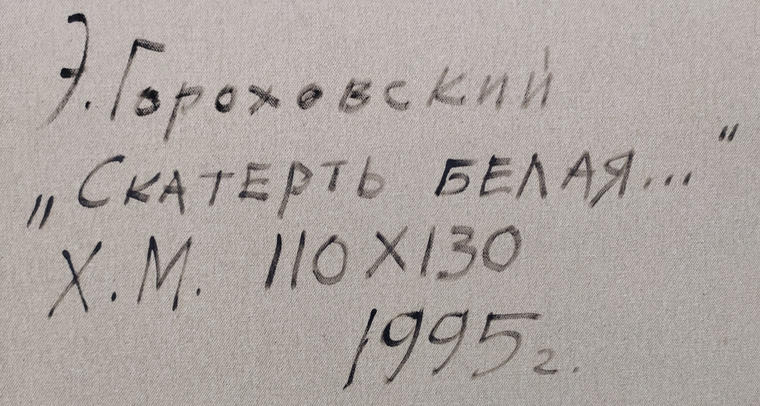 Э. Гороховский
„Скатерть белая..."
Х.М. 110 х 130
1995 г.